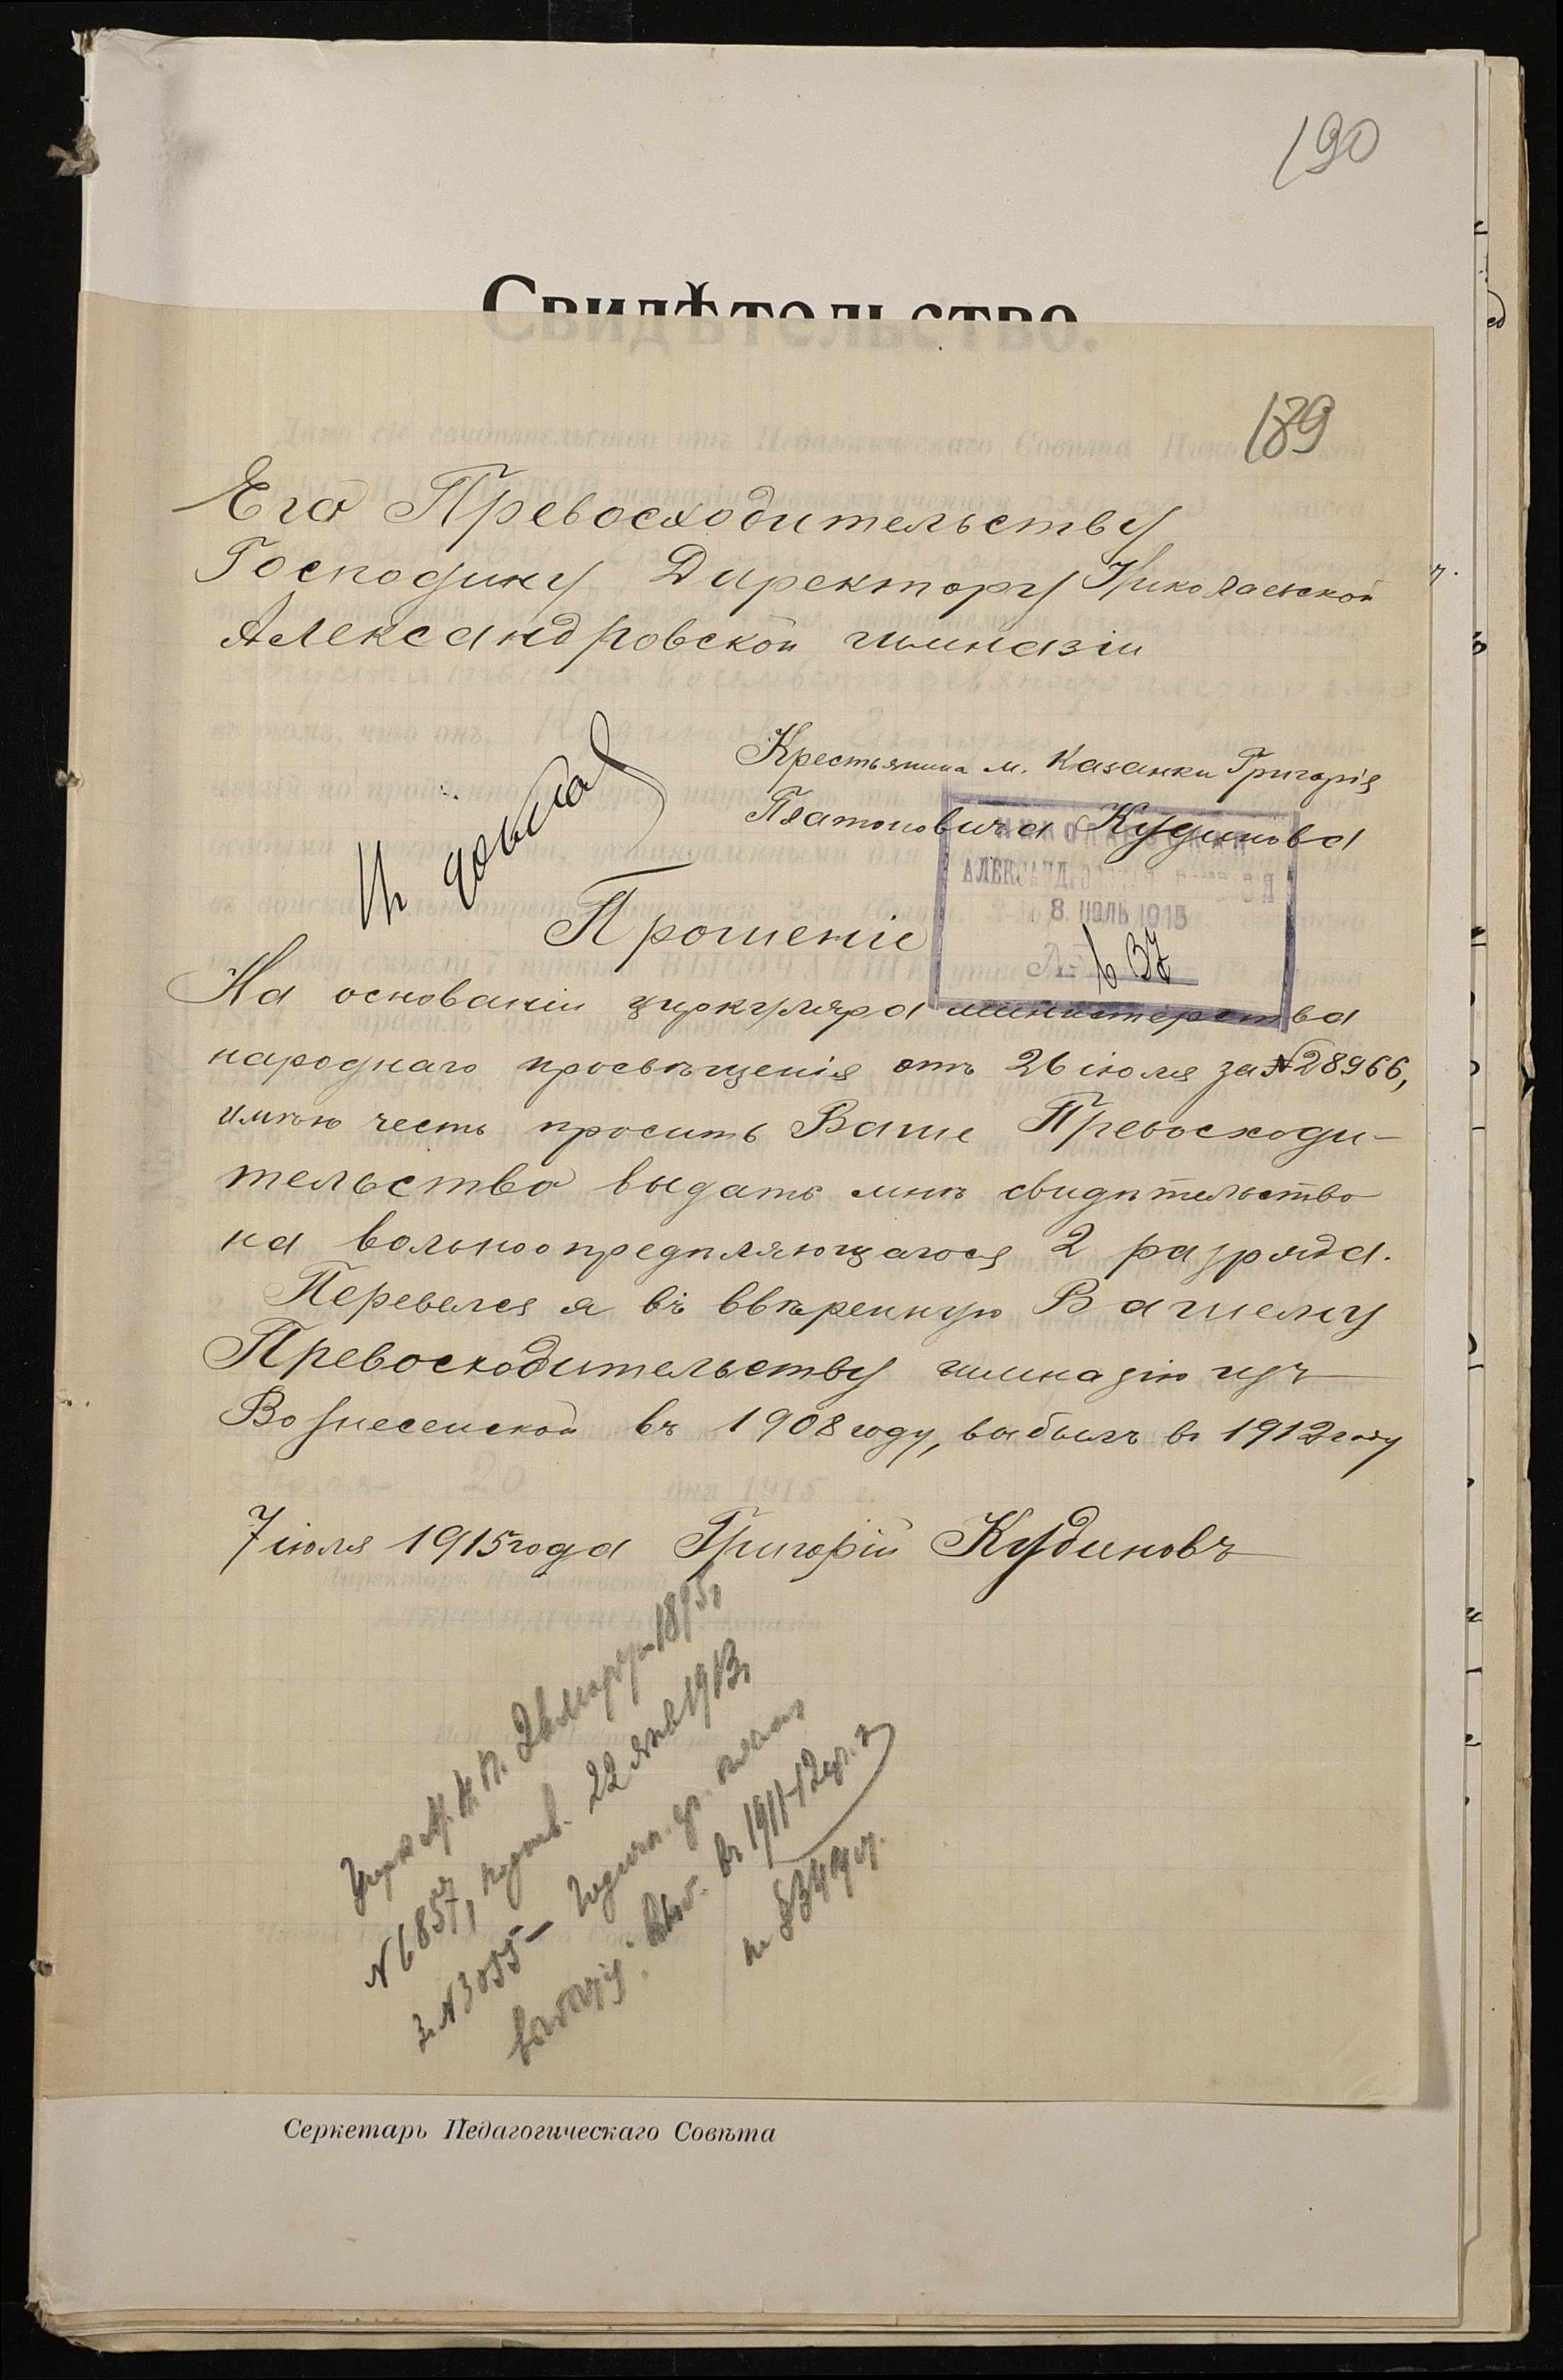 190
Свидѣтельство.
189
Его Превосходительству
Господину Директору Николаевской
Александровской гимназіи
Крестьянина м. Казанки Григорія
Платоновича Кудинова
АЛЕКСАНДРОВСКАЯ
8 ІЮЛЬ 1915
№ 637
Прошеніе
На основаніи циркуляра министерства
народнаго просвѣщенія отъ 26 іюля за №28966,
имѣю честь просить Ваше Превосходи-
тельство выдать мнѣ свидѣтельство
на вольноопредѣляющагося 2 разряда.
Перевелся я въ ввѣренную Вашему
Превосходительству гимназію изъ
Вознесенской въ 1908 году, выбылъ въ 1912 году
7 іюля 1915 года Григорій Кудиновъ
26 марта 1895г
№ 6857, 22 янв 1913г
за №3055 –
въ 1911-12 уч. г.
Серкетарь Педагогическаго Совѣта